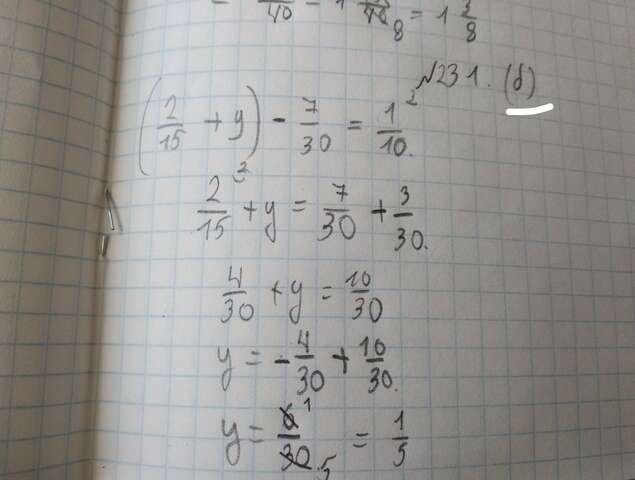 40 8 = 1 3/8
№231. (б)
(2/15 + y) - 7/30 = 1/10.
2/15 + y = 7/30 + 3/30.
4/30 + y = 10/30
y = -4/30 + 10/30.
y = 6/30 1 5 = 1/5